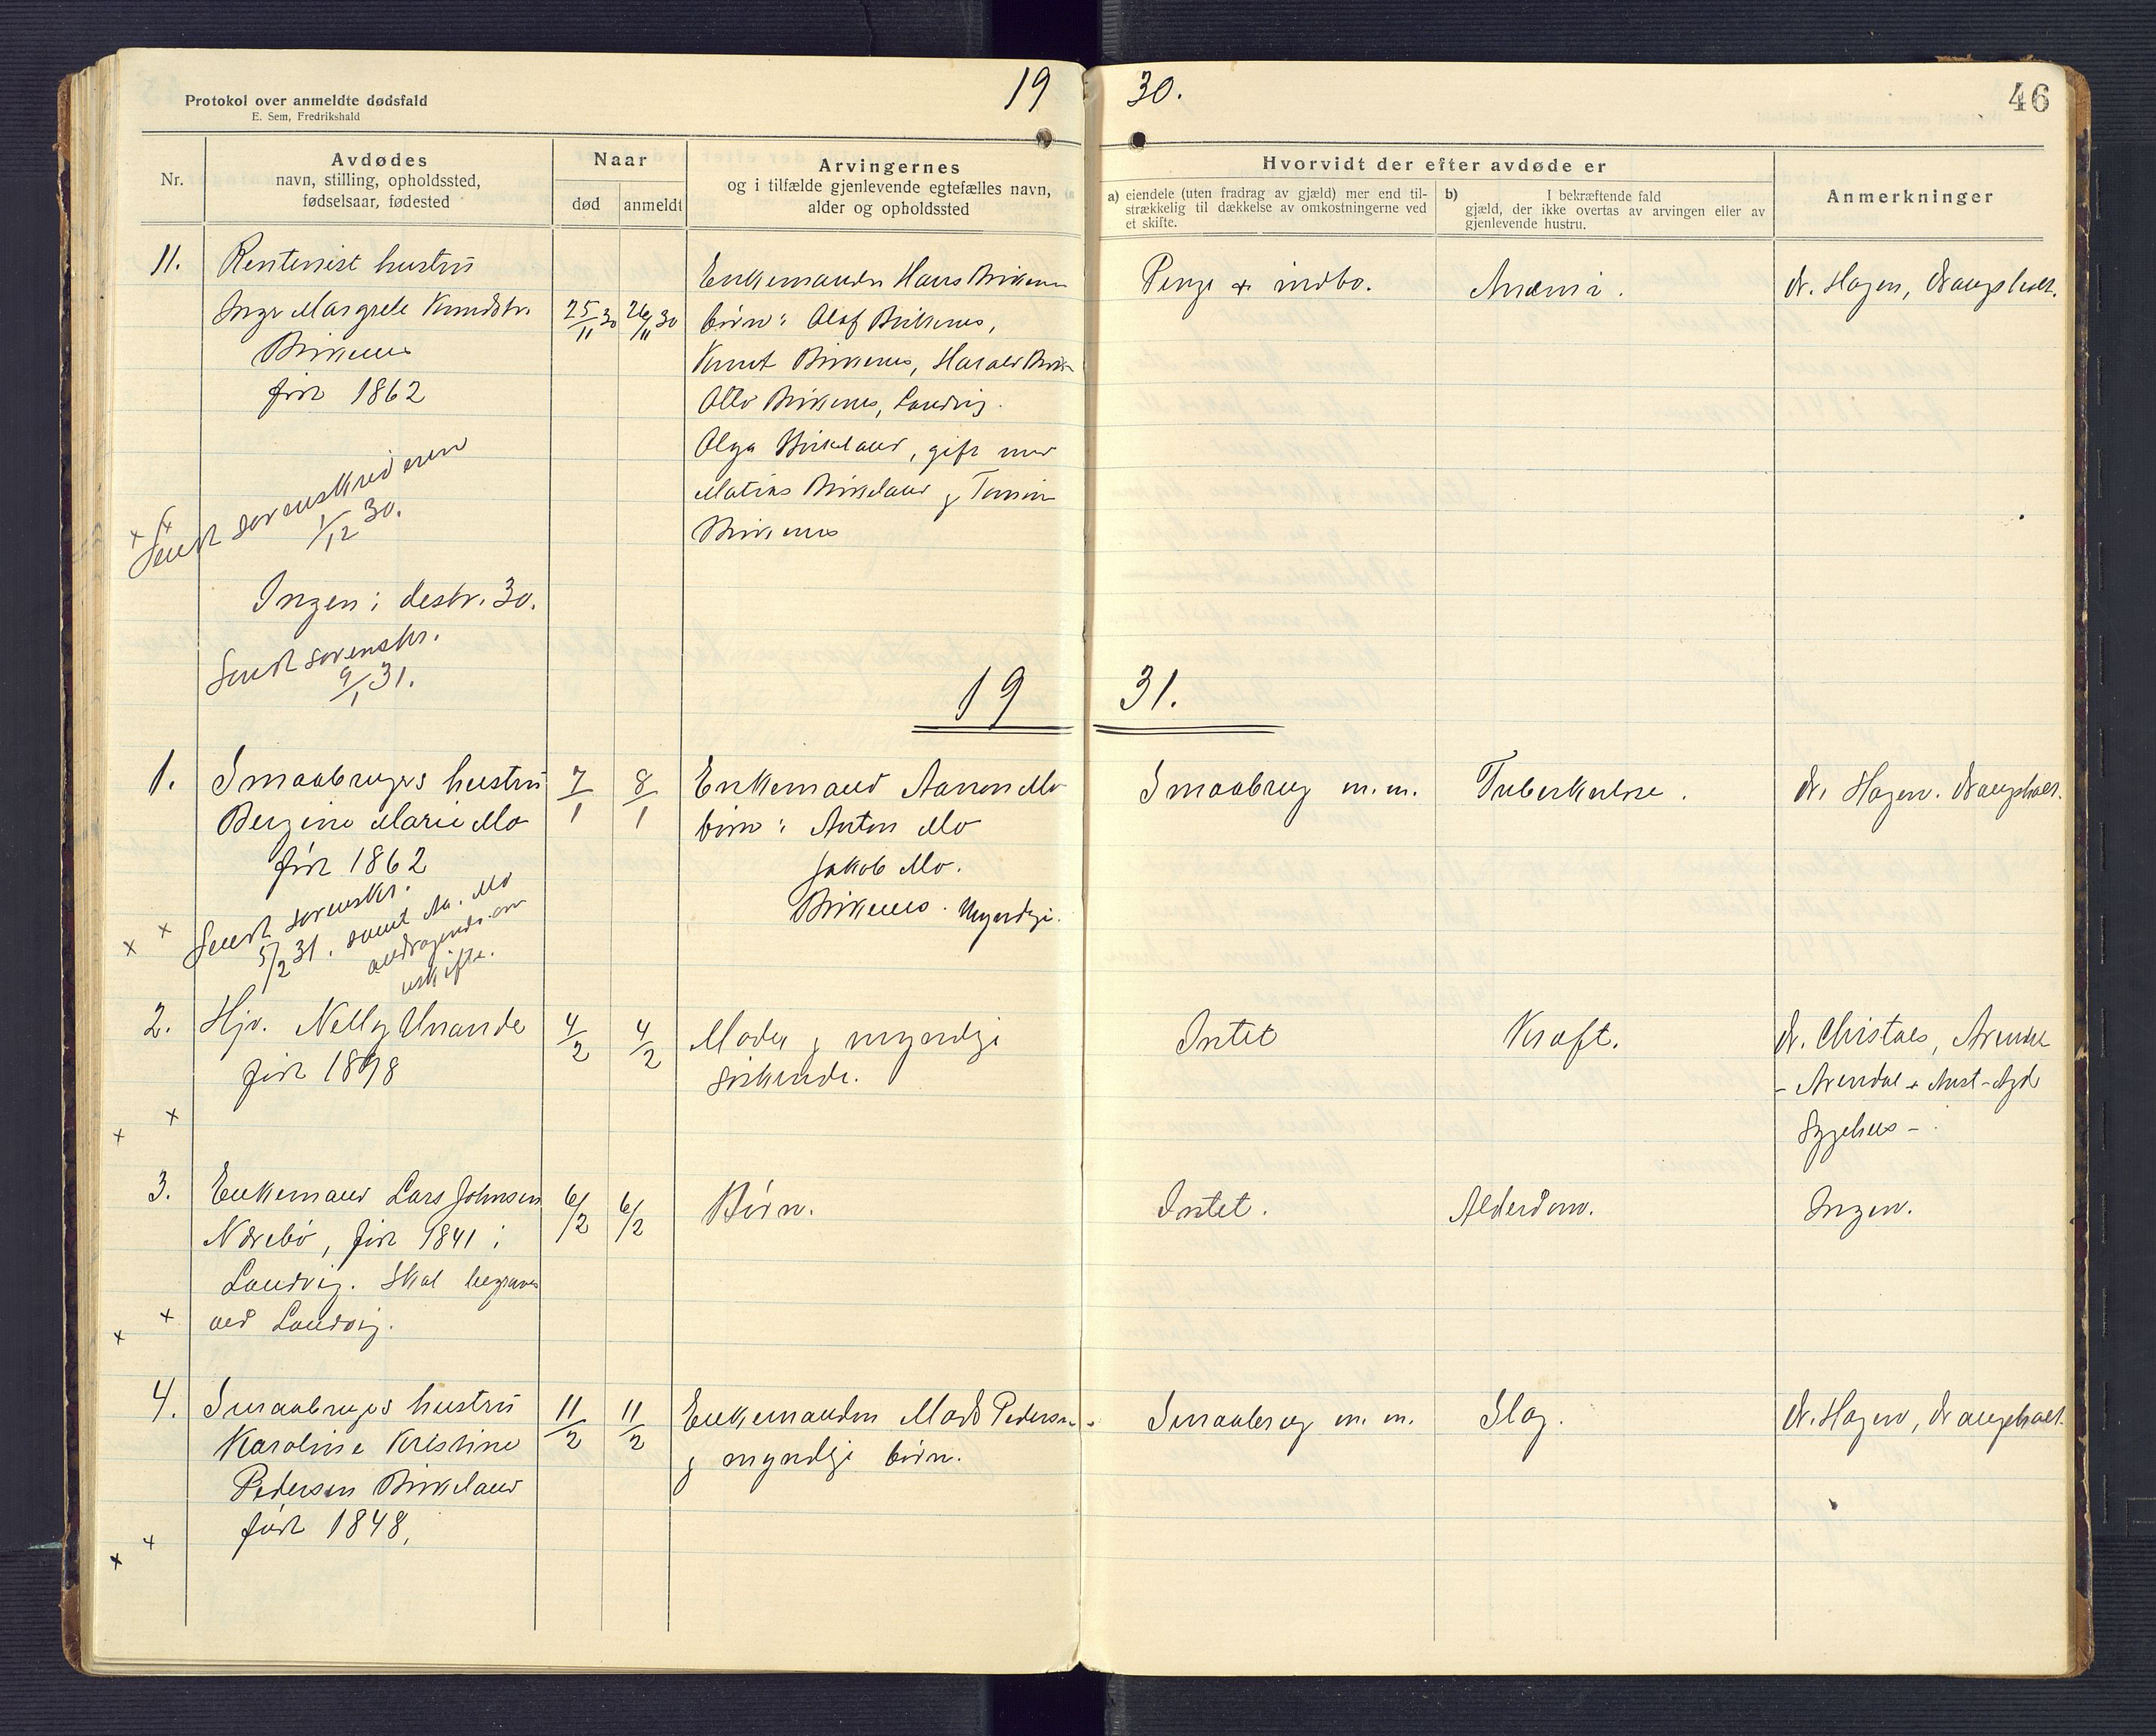 Protokol over anmeldte dødsfald
E. Sem, Fredrikshald
19 30.
46
Nr.
Avdødes
navn, stilling, opholdssted,
fødselsaar, fødested
Naar
død
anmeldt
Arvingernes
og i tilfælde gjenlevende egtefælles navn,
alder og opholdssted
Hvorvidt der efter avdøde er
a) eiendele (uten fradrag av gjæld) mer end til-
strækkelig til dækkelse av omkostningerne ved
et skifte.
b) I bekræftende fald
gjæld, der ikke overtas av arvingen eller av
gjenlevende hustru.
Anmerkninger
11.
Rentenist hustru
Inge Margrete Knudstr.
Birkenes
født 1862
25/11 30
26/11 30
Enkemanden Hans Birkenes
børn: Olaf Birkenes,
Knut Birkenes, Harald Birk-
Otto Birkenes, Landvig.
Olga Birkeland, gift med
Matias Birkeland og Tomine
Birkenes
Penge + indbo.
Anæmi.
dr. Hagen, Vaagsholt.
Sendt sorenskriveren
1/12 30.
Ingen i desbr. 30.
Sendt sorenskr.
9/1 31.
19 31.
1.
Smaabrugers hustru
Bergine Marie Mo
født 1862
7/1
8/1
Enkemand Aanon Mo
børn: Anton Mo
Jakob Mo.
Birkenes. Myndige.
Smaabrug m.m.
Tuberkulose.
dr. Hagen.
Sendt sorenskr.
5/2 31. samt Aa. Mo
andragende om
uskifte.
2.
Hjv. Nelly Unande
født 1898
4/2
4/2
Moder og myndige
søskende.
Intet
Kræft.
dr. Christaes, Arendal
- Arendal + Aust-Agd
Sygehus -.
3.
Enkemand Lars Johnsen
Nærebø, født 1841 i
Landvig. Skal begraves
ved Landvig.
6/2
6/2
Børn.
Intet.
Alderdom.
Ingen.
4.
Smaabrugers hustru
Karoline Kristine
Pedersen Birkeland
født 1848,
11/2
11/2
Enkemanden Mads Pedersen
og myndige børn.
Smaabrug m.m.
Slag.
dr. Hagen,